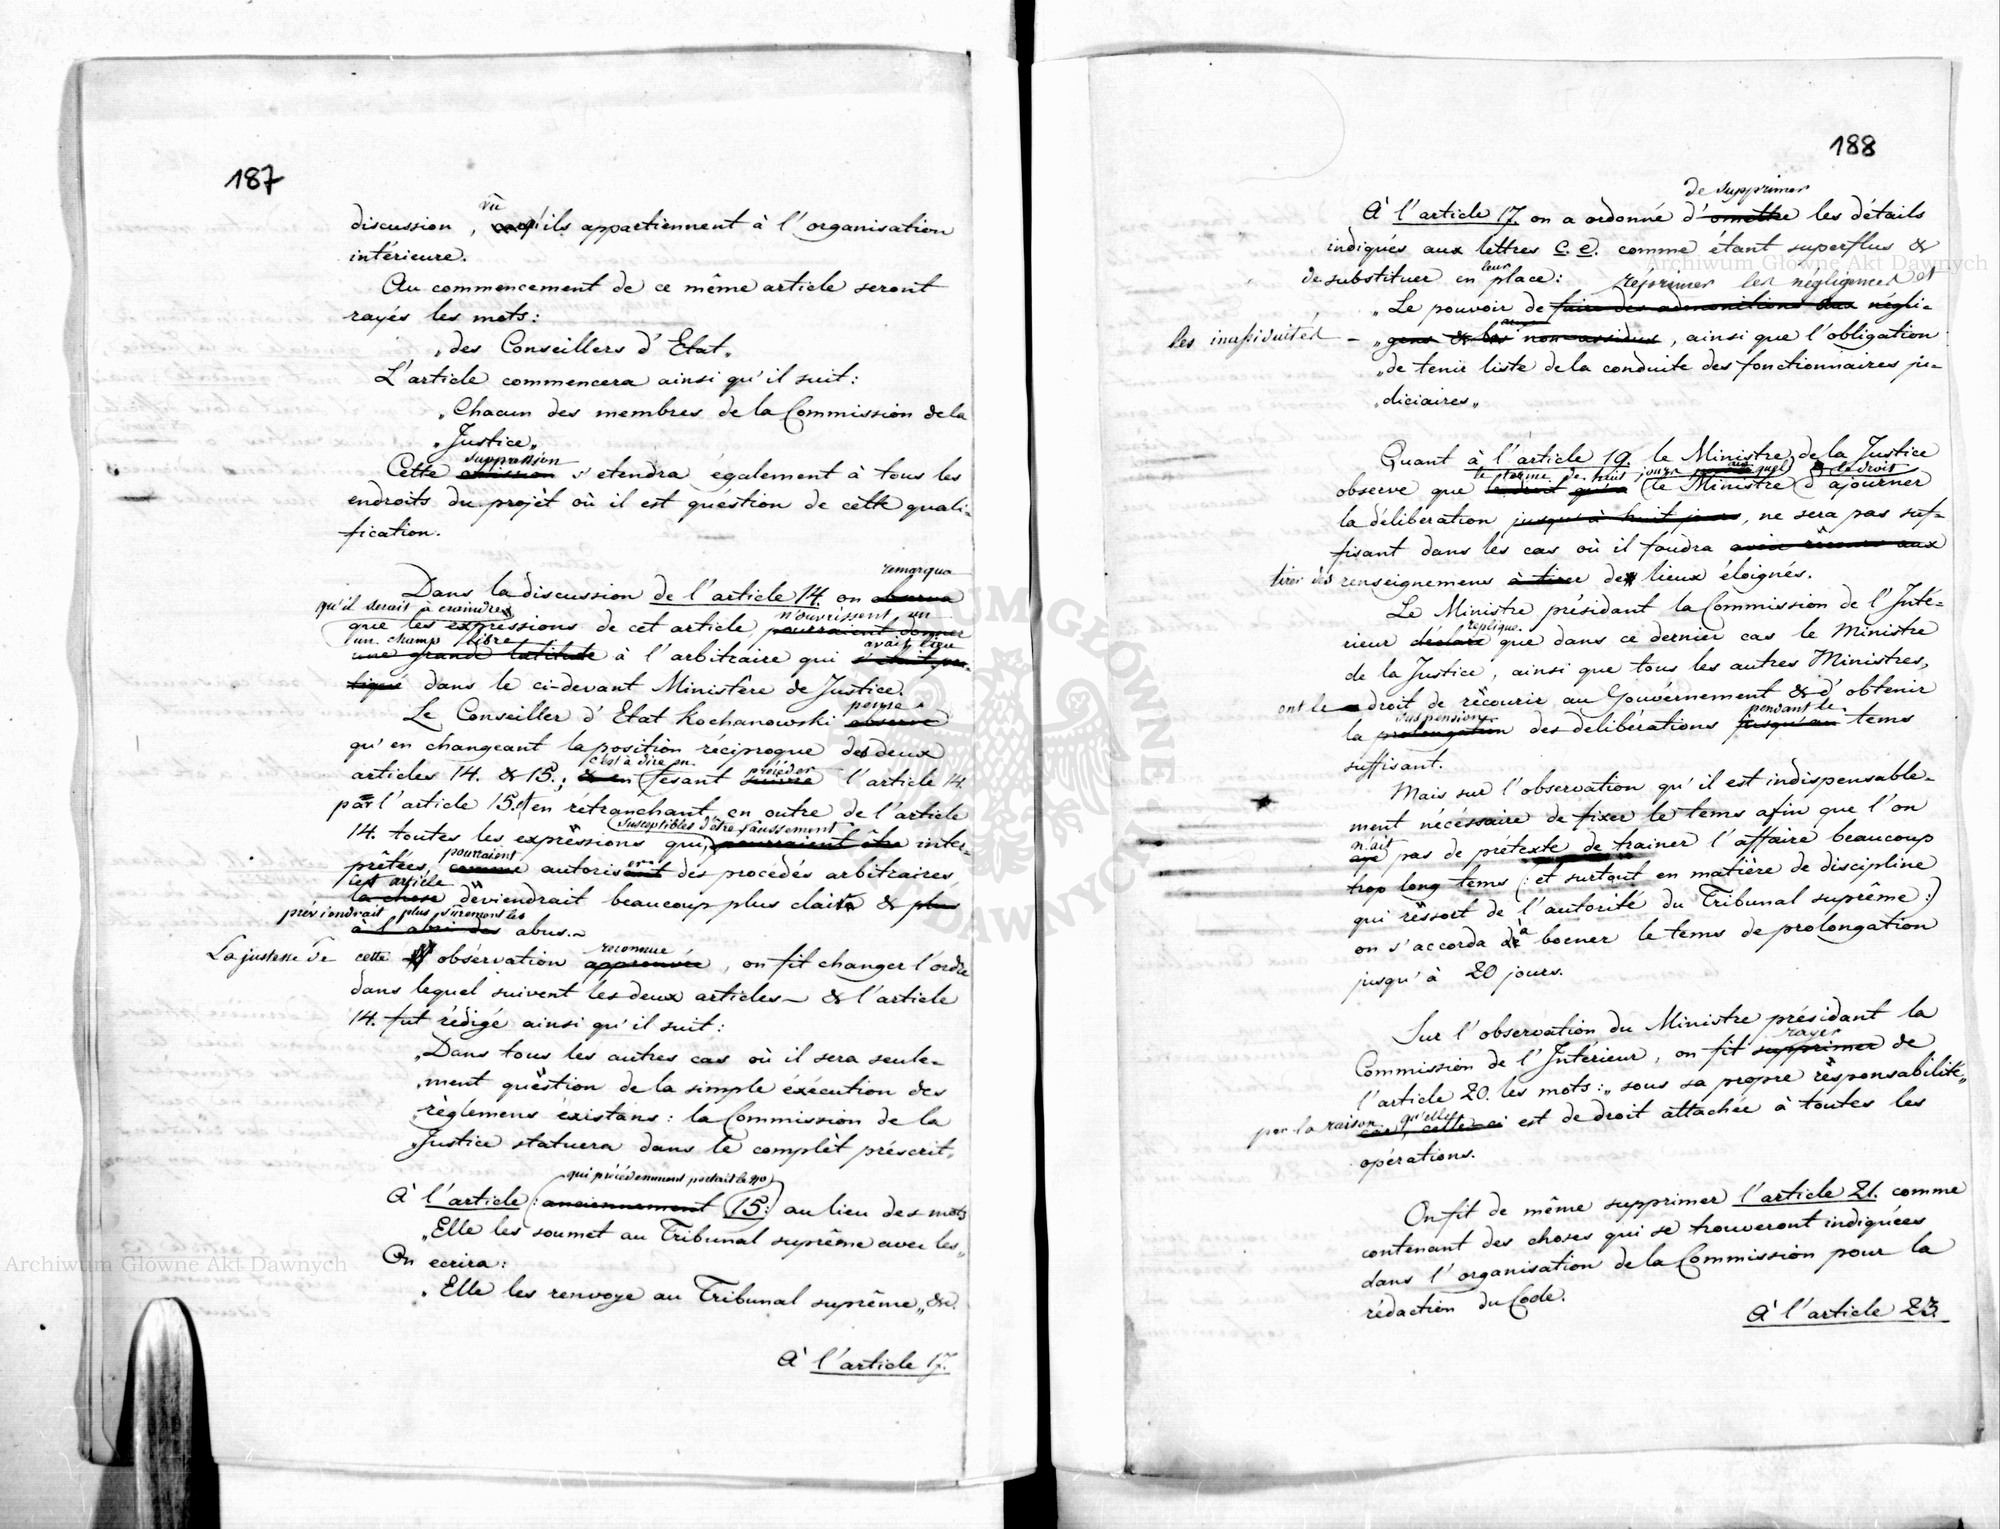 187
vû
discussion, qu'ils appartiennent à l'organisation
intérieure.
Au commencement de ce même article seront
rayés les mots:
„des Conseillers d'Etat„
L'article commencera ainsi qu'il suit:
„Chacun des membres de la Commission de la
„Justice„
suppression
Cette omission s'etendra également à tous les
endroits du projèt où il est question de cette quali-
fication.
remarqua
Dans la discussion de l'article 14. on observa
qu'il serait à craindre
n'ouvrissent un
que les expressions de cet article, pourraient donner
un champ libre
avait lieu
une grande latitude à l'arbitraire qui s'etait pra-
tiqué dans le ci-devant Ministère de Justice.
pense
Le Conseiller d'Etat Kochanowski observe
qu'en changeant la position réciproque des deux
c'est à dire en
précéder
articles 14. & 15.; & en fesant suivre l'article 14.
par l'article 15. et en rétranchant en outre de l'article
susceptibles d'être faussement
14. toutes les expressions qui pourraient être inter-
pourraient
prêtres, comme autorisant des procédés arbitraires,
cet article
la chose déviendrait beaucoup plus clair & plus
préviendrait plus sûrement les
à l'abri des abus.
reconnue
La justesse de cette observation approuvée, on fit changer l'ordre
dans lequel suivent les deux articles & l'article
14. fut rédigé ainsi qu'il suit:
„Dans tous les autres cas où il sera seule-
„ment question de la simple éxécution des
règlemens existans: la Commission de la
„Justice statuera dans le complèt préscrit„
qui précédemment portait le no
À l'article (: anciennement 15:) au lieu des mots
„Elle les soumet au Tribunal suprême avec les„
On ecrira:
„Elle les renvoye au Tribunal suprême„ &c.
À l'article 17.
188
de supprimer
À l'article 17. on a ordonné d'omettre les détails
indiqués aux lettres c. e. comme étant superflus &
leur
de substituer en place:
reprimer les négligences et
„Le pouvoir de faire des admonitions aux négli-
aux
les inassiduités - „gens & les non-assidus, ainsi que l'obligation
„de tenir liste de la conduite des fonctionnaires ju-
„diciaires„
Quant à l'article 19. le Ministre de la Justice
le terme de huit jours auquel le droit
observe que le droit qu'a le Ministre d'ajourner
la déliberation jusqu'à huit jours, ne sera pas suf-
fisant dans les cas où il faudra avoir récours aux
tirer des renseignemens à tirer des lieux éloignés.
Le Ministre présidant la Commission de l'Inté-
replique
rieur déclare que dans ce dernier cas le Ministre
de la Justice, ainsi que tous les autres Ministres,
ont le droit de récourir au Gouvérnement & d'obtenir
suspension
pendant le
la prolongation des délibérations jusqu'au tems
suffisant.
Mais sur l'observation qu'il est indispensable-
ment nécéssaire de fixer le tems afin que l'on
n'ait
aye pas de prétexte de trainer l'affaire beaucoup
trop long tems (: et surtout en matière de discipline
qui réssort de l'autorité du Tribunal suprême:)
à
on s'accorda de borner le tems de prolongation
jusqu'à 20 jours.
Sur l'observation du Ministre présidant la
rayer
Commission de l'Intérieur, on fit supprimer de
l'article 20. les mots: „sous sa propre résponsabilité„
par la raison qu'elle
car, cette ci est de droit attachée à toutes les
opérations.
On fit de même supprimer l'article 21. comme
contenant des choses qui se trouveront indiquées
dans l'organisation de la Commission pour la
rédaction du Code.
À l'article 23.
Archiwum Główne Akt Dawnych
Archiwum Główne Akt Dawnych